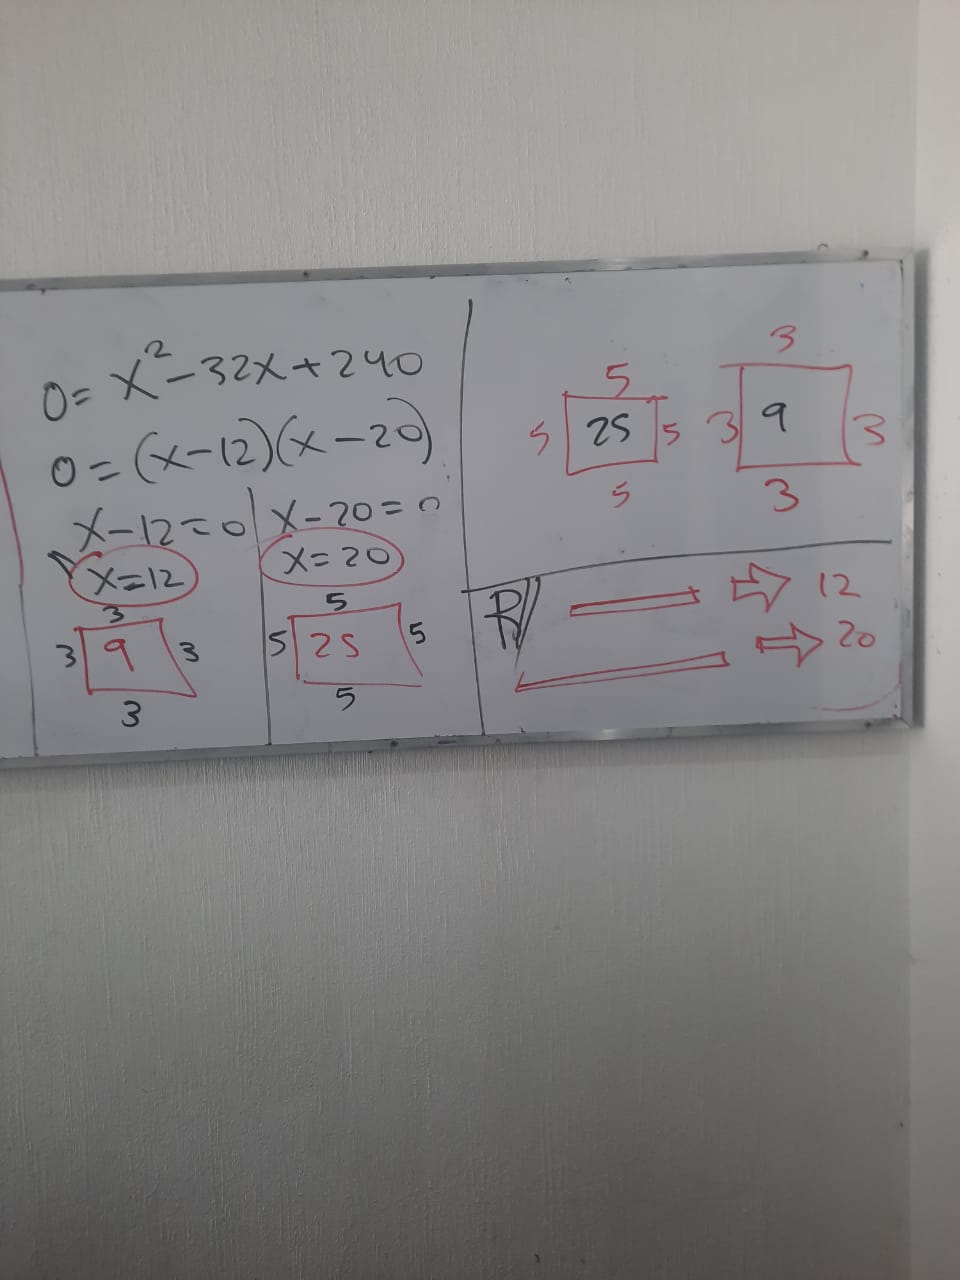 0 = x² - 32x + 240
0 = (x - 12)(x - 20)
x - 12 = 0
x = 12
3
3 9 3
3
x - 20 = 0
x = 20
5
5 25 5
5
5
5 25 5
5
3
3 9 3
3
R// ⇒ 12
⇒ 20